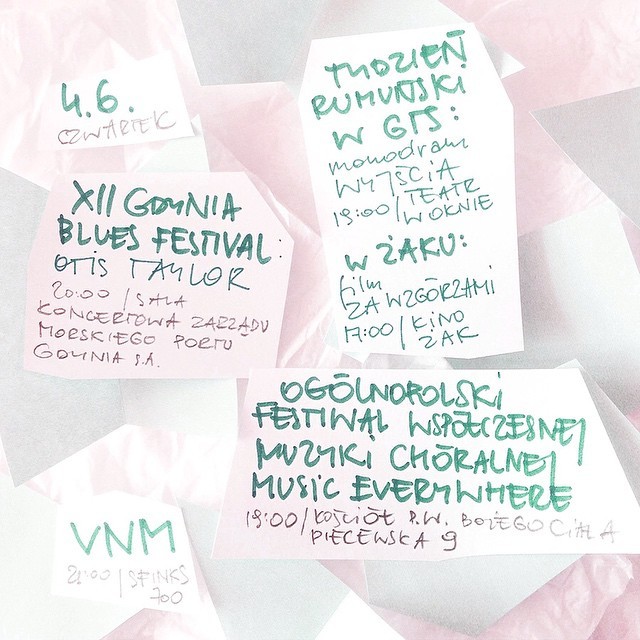 4.6.
CZWARTEK
TYDZIEŃ
RUMUŃSKI
W GTS:
monodram
WYJŚCIA
19:00/TEATR
W OKNIE
W ŻAKU:
film
ZA WZGÓRZAMI
17:00/KINO
ŻAK
XII GDYNIA
BLUES FESTIVAL:
OTIS TAYLOR
20:00/SALA
KONCERTOWA ZARZĄDU
MORSKIEGO PORTU
GDYNIA S.A.
OGÓLNOPOLSKI
FESTIWAL WSPÓŁCZESNEJ
MUZYKI CHÓRALNEJ
MUSIC EVERYWHERE
19:00/KOŚCIÓŁ P.W. BOŻEGO CIAŁA
PIECEWSKA 9
VNM
21:00/SFINKS
700